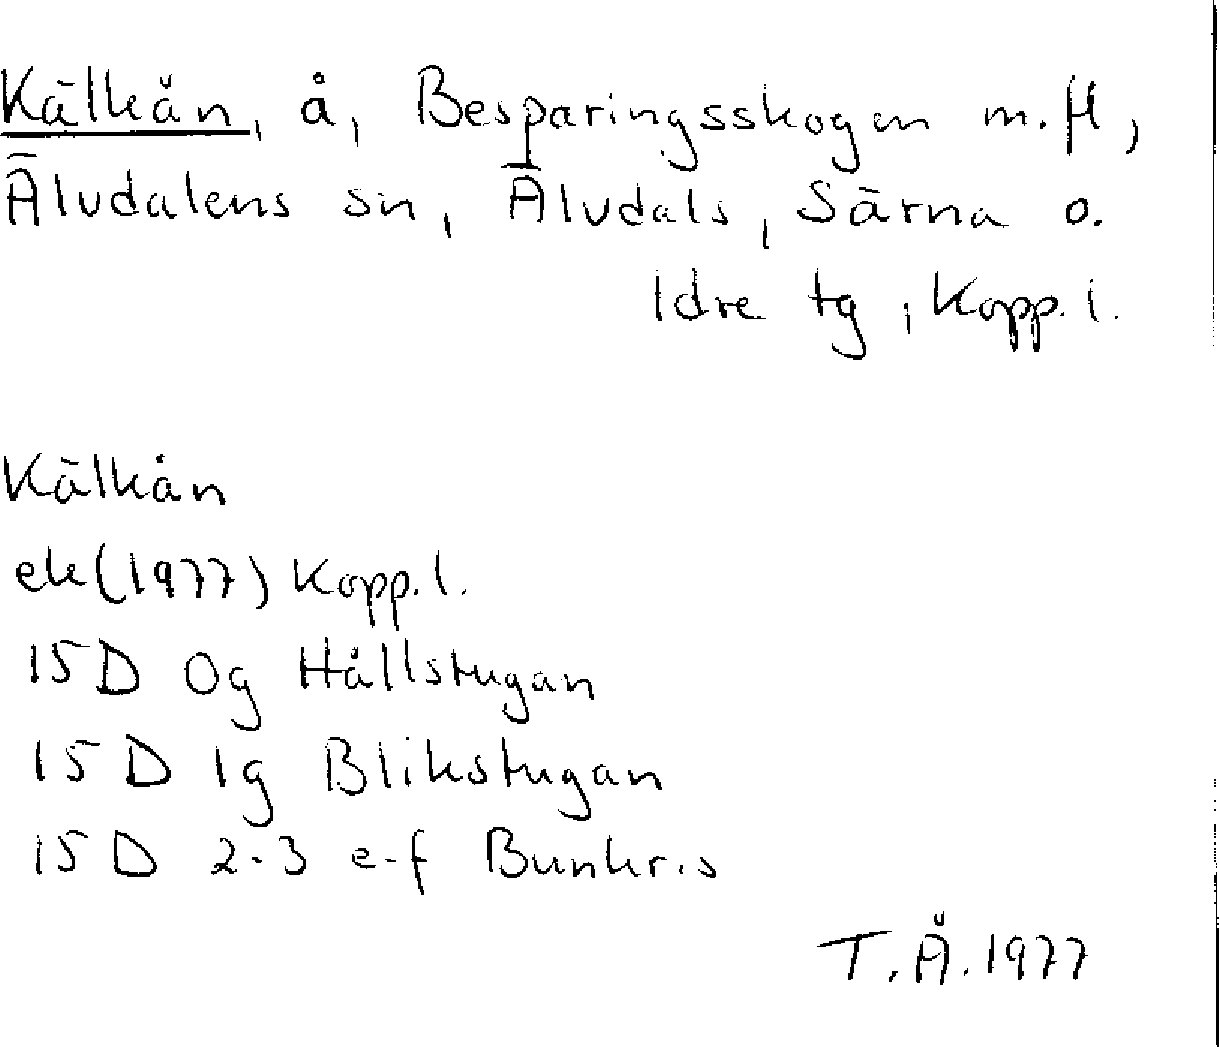 Kälkån, å, Besparingsskogen m.fl,
Älvdalens sn, Älvdals, Särna o.
Idre tg, Kopp.l.
Kälkån
ek(1977) Kopp.l.
15D 0g Hållstugan
15D 1g Blikstugan
15D 2-3 e-f Bunkris
T.Å.1977